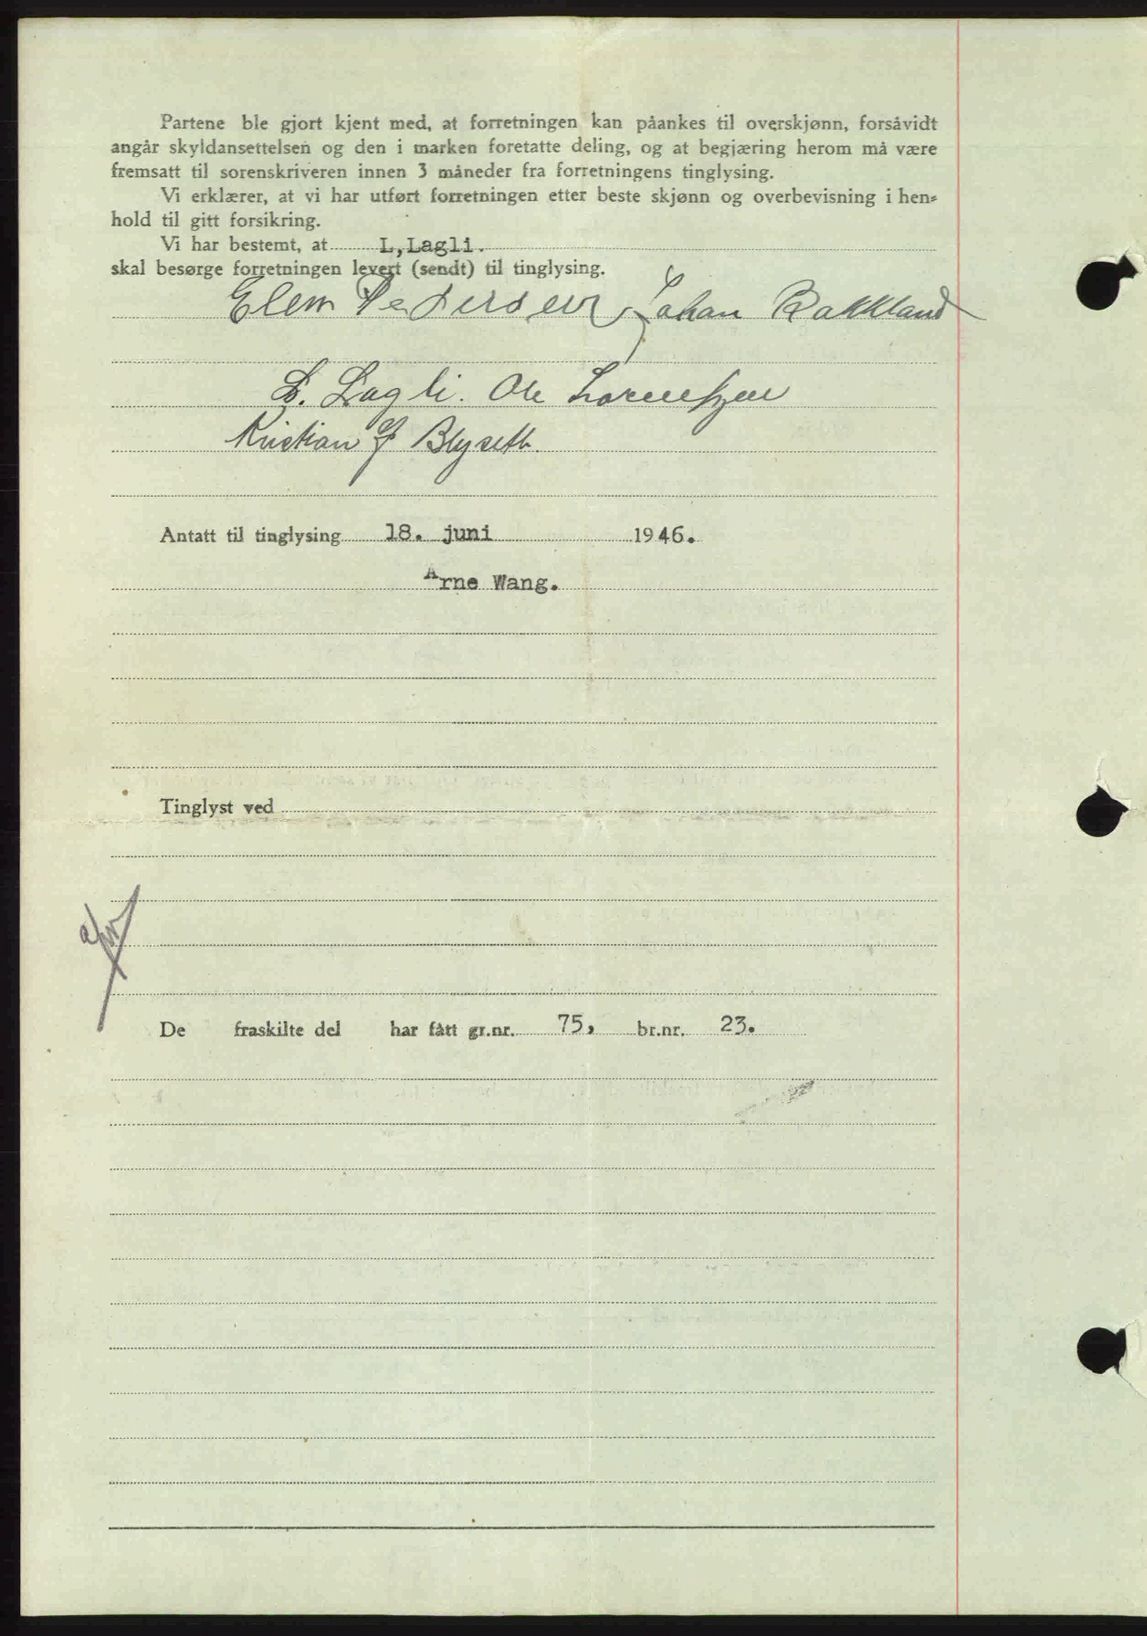 Partene ble gjort kjent med, at forretningen kan påankes til overskjønn, forsåvidt
angår skyldansettelsen og den i marken foretatte deling, og at begjæring herom må være
fremsatt til sorenskriveren innen 3 måneder fra forretningens tinglysing.
Vi erklærer, at vi har utført forretningen etter beste skjønn og overbevisning i hen-
hold til gitt forsikring.
Vi har bestemt, at L,Lagli.
skal besørge forretningen levert (sendt) til tinglysing.
Elen Pedersen Johan Bakkland
L. Lagli. Ole
Kristian J Blyseth.
Antatt til tinglysing 18. juni 1946.
Arne Wang.
Tinglyst ved
De fraskilte del har fått gr.nr. 75, br.nr. 23.